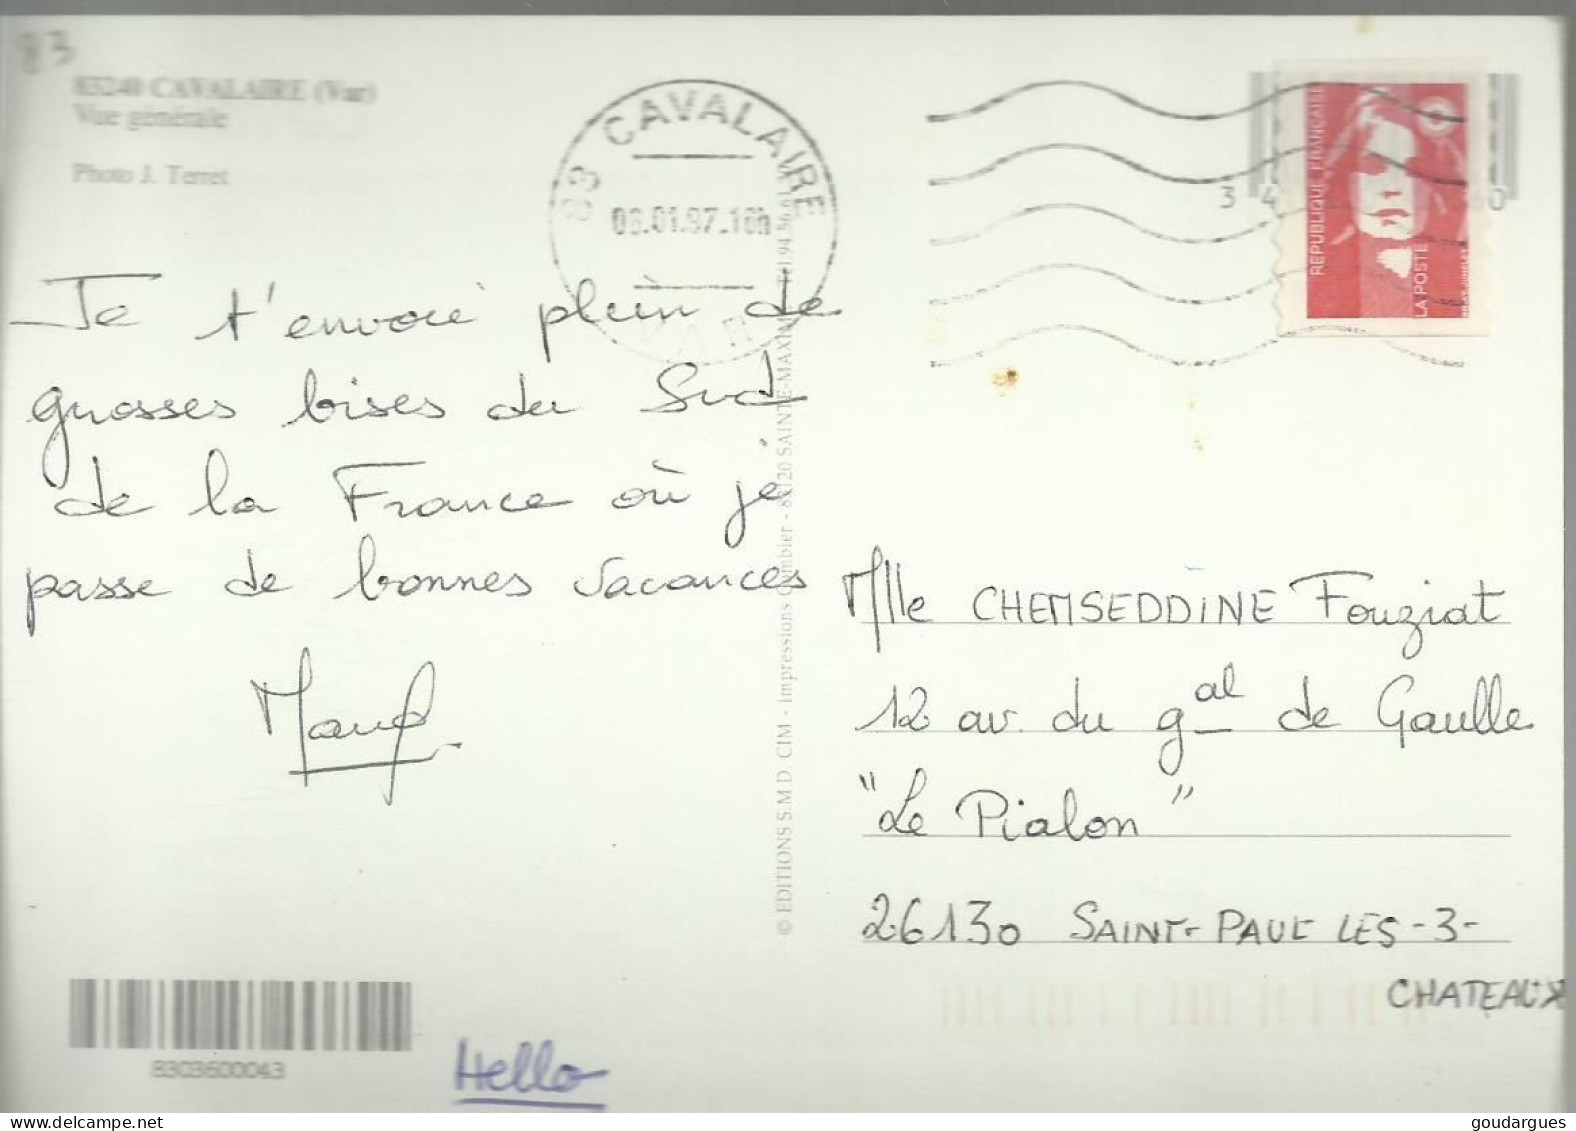 83
83240 CAVALAIRE (Var)
Vue générale
Photo J. Terret
83 CAVALAIRE
06.01.97.16h
VAR
REPUBLIQUE FRANÇAISE
LA POSTE
Je t'envoie plein de
grosses bises du Sud
de la France où je
passe de bonnes vacances
© EDITIONS S.M.D. CIM - Impressions Combier - 83120 SAINTE-MAXIME
Mlle CHEMSEDDINE Fouziat
12 av. du gal de Gaulle
"Le Pialon"
26130 SAINT-PAUL LES-3-
CHATEAUX
8303600043
Hello
goudargues.com